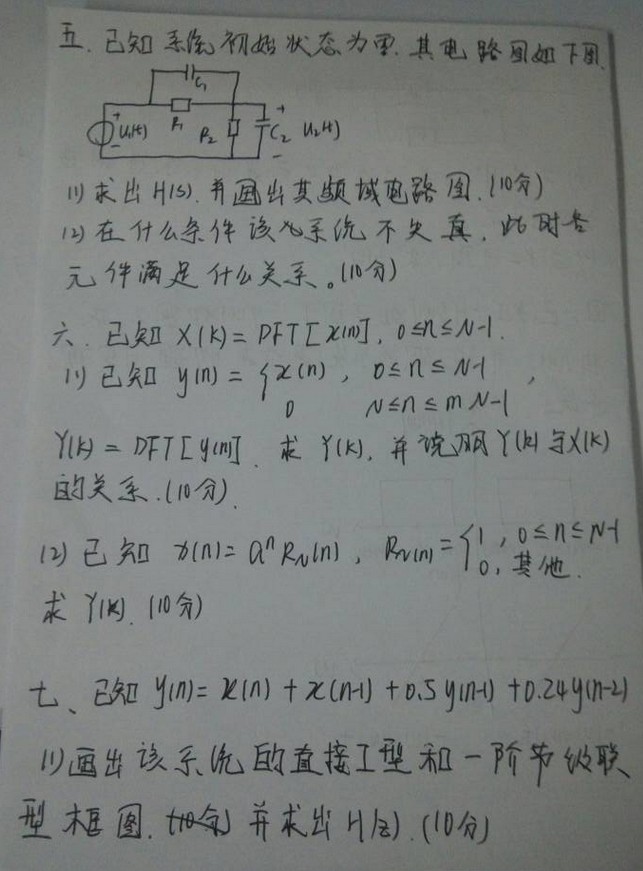 五. 已知系统初始状态为零. 其电路图如下图.
C₁
+ U₁(t) - R₁ R₂ + C₂ U₂(t) -
(1) 求出H(s). 并画出其频域电路图. (10分)
(2) 在什么条件该系统不失真, 此时各
元件满足什么关系。(10分)
六. 已知 X(k) = DFT[x(n)], 0≤n≤N-1.
(1) 已知 y(n) = { x(n), 0≤n≤N-1 ,
0 N≤n≤mN-1
Y(k) = DFT[y(n)]. 求 Y(k), 并说明Y(k)与X(k)
的关系. (10分).
(2) 已知 x(n) = aⁿ R_N(n), R_N(n) = { 1, 0≤n≤N-1
0, 其他.
求 Y(k). (10分)
七、已知 y(n) = x(n) + x(n-1) + 0.5y(n-1) + 0.24y(n-2)
(1) 画出该系统的直接I型和一阶节级联
型框图. 并求出H(z). (10分)